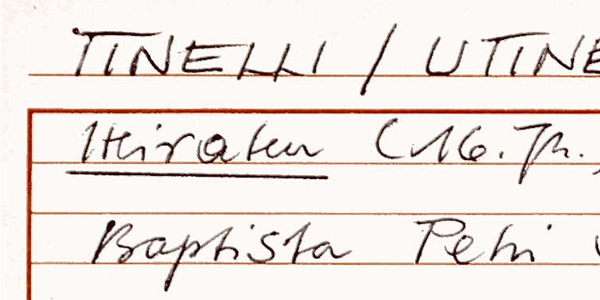 TINELLI / UTINE
Heiraten (16. Jh.,
Baptista Petri